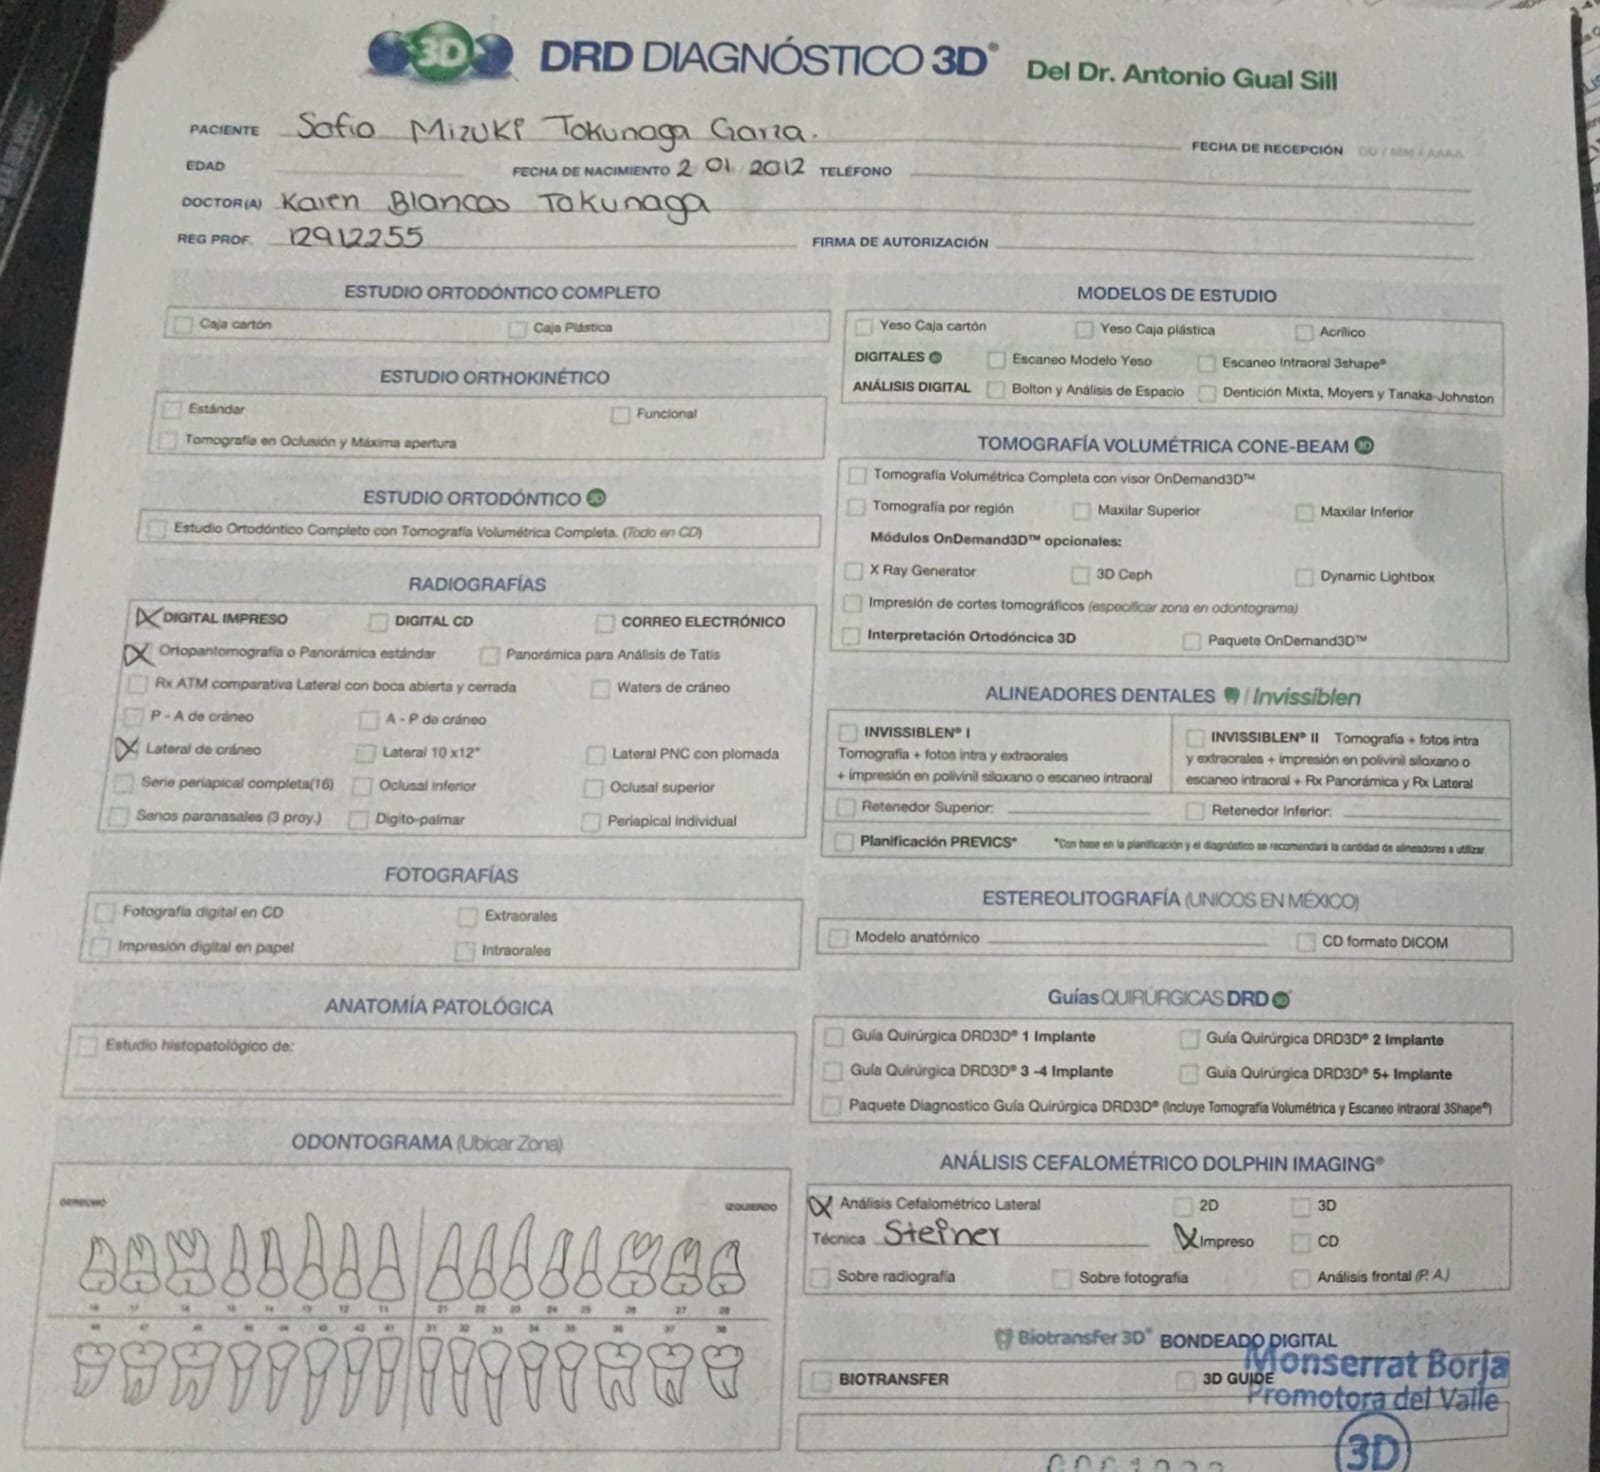 3D DRD DIAGNÓSTICO 3D® Del Dr. Antonio Gual Sill
PACIENTE Sofia Mizuki Tokunaga Garza. FECHA DE RECEPCIÓN DD / MM / AAAA
EDAD FECHA DE NACIMIENTO 2 01 2012 TELÉFONO
DOCTOR(A) Karen Blancas Tokunaga
REG PROF. 12912255 FIRMA DE AUTORIZACIÓN
ESTUDIO ORTODÓNTICO COMPLETO
Caja cartón Caja Plástica
ESTUDIO ORTHOKINÉTICO
Estándar Funcional
Tomografía en Oclusión y Máxima apertura
ESTUDIO ORTODÓNTICO 3D
Estudio Ortodóntico Completo con Tomografía Volumétrica Completa. (Todo en CD)
RADIOGRAFÍAS
DIGITAL IMPRESO DIGITAL CD CORREO ELECTRÓNICO
Ortopantomografía o Panorámica estándar Panorámica para Análisis de Tatis
Rx ATM comparativa Lateral con boca abierta y cerrada Waters de cráneo
P - A de cráneo A - P de cráneo
Lateral de cráneo Lateral 10 x12" Lateral PNC con plomada
Serie periapical completa(16) Oclusal inferior Oclusal superior
Senos paranasales (3 proy.) Digito-palmar Periapical individual
FOTOGRAFÍAS
Fotografía digital en CD Extraorales
Impresión digital en papel Intraorales
ANATOMÍA PATOLÓGICA
Estudio histopatológico de:
ODONTOGRAMA (Ubicar Zona)
DERECHO IZQUIERDO
13 12 11 21 22 23 24 25 26 27 28
31 32 33 34 35 36 37 38
MODELOS DE ESTUDIO
Yeso Caja cartón Yeso Caja plástica Acrílico
DIGITALES 3D Escaneo Modelo Yeso Escaneo Intraoral 3shape®
ANÁLISIS DIGITAL Bolton y Análisis de Espacio Dentición Mixta, Moyers y Tanaka-Johnston
TOMOGRAFÍA VOLUMÉTRICA CONE-BEAM 3D
Tomografía Volumétrica Completa con visor OnDemand3D™
Tomografía por región Maxilar Superior Maxilar Inferior
Módulos OnDemand3D™ opcionales:
X Ray Generator 3D Ceph Dynamic Lightbox
Impresión de cortes tomográficos (especificar zona en odontograma)
Interpretación Ortodóncica 3D Paquete OnDemand3D™
ALINEADORES DENTALES / Invissiblen
INVISSIBLEN® I
Tomografía + fotos intra y extraorales
+ impresión en polivinil siloxano o escaneo intraoral
INVISSIBLEN® II Tomografía + fotos intra
y extraorales + impresión en polivinil siloxano o
escaneo intraoral + Rx Panorámica y Rx Lateral
Retenedor Superior: Retenedor Inferior:
Planificación PREVICS* *Con base en la planificación y el diagnóstico se recomendará la cantidad de alineadores a utilizar.
ESTEREOLITOGRAFÍA (UNICOS EN MÉXICO)
Modelo anatómico CD formato DICOM
Guías QUIRÚRGICAS DRD 3D
Guía Quirúrgica DRD3D® 1 Implante Guía Quirúrgica DRD3D® 2 Implante
Guía Quirúrgica DRD3D® 3 -4 Implante Guía Quirúrgica DRD3D® 5+ Implante
Paquete Diagnostico Guía Quirúrgica DRD3D® (Incluye Tomografía Volumétrica y Escaneo intraoral 3Shape®)
ANÁLISIS CEFALOMÉTRICO DOLPHIN IMAGING®
Análisis Cefalométrico Lateral 2D 3D
Técnica Steiner Impreso CD
Sobre radiografía Sobre fotografía Análisis frontal (P. A.)
Biotransfer 3D® BONDEADO DIGITAL
BIOTRANSFER 3D GUIDE
Monserrat Borja
Promotora del Valle
3D